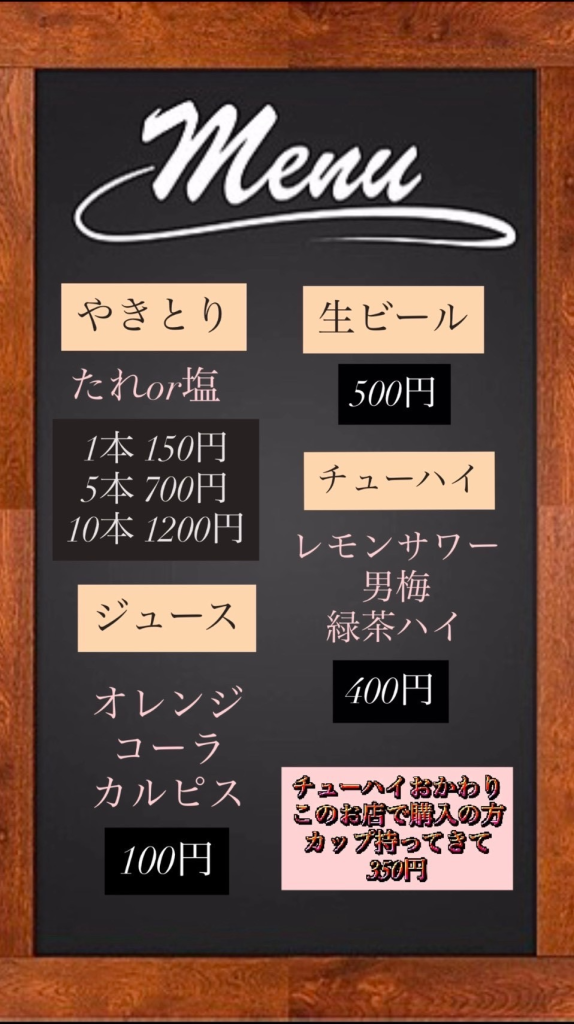 Menu
やきとり
たれor塩
1本 150円
5本 700円
10本 1200円
ジュース
オレンジ
コーラ
カルピス
100円
生ビール
500円
チューハイ
レモンサワー
男梅
緑茶ハイ
400円
チューハイおかわり
このお店で購入の方
カップ持ってきて
350円